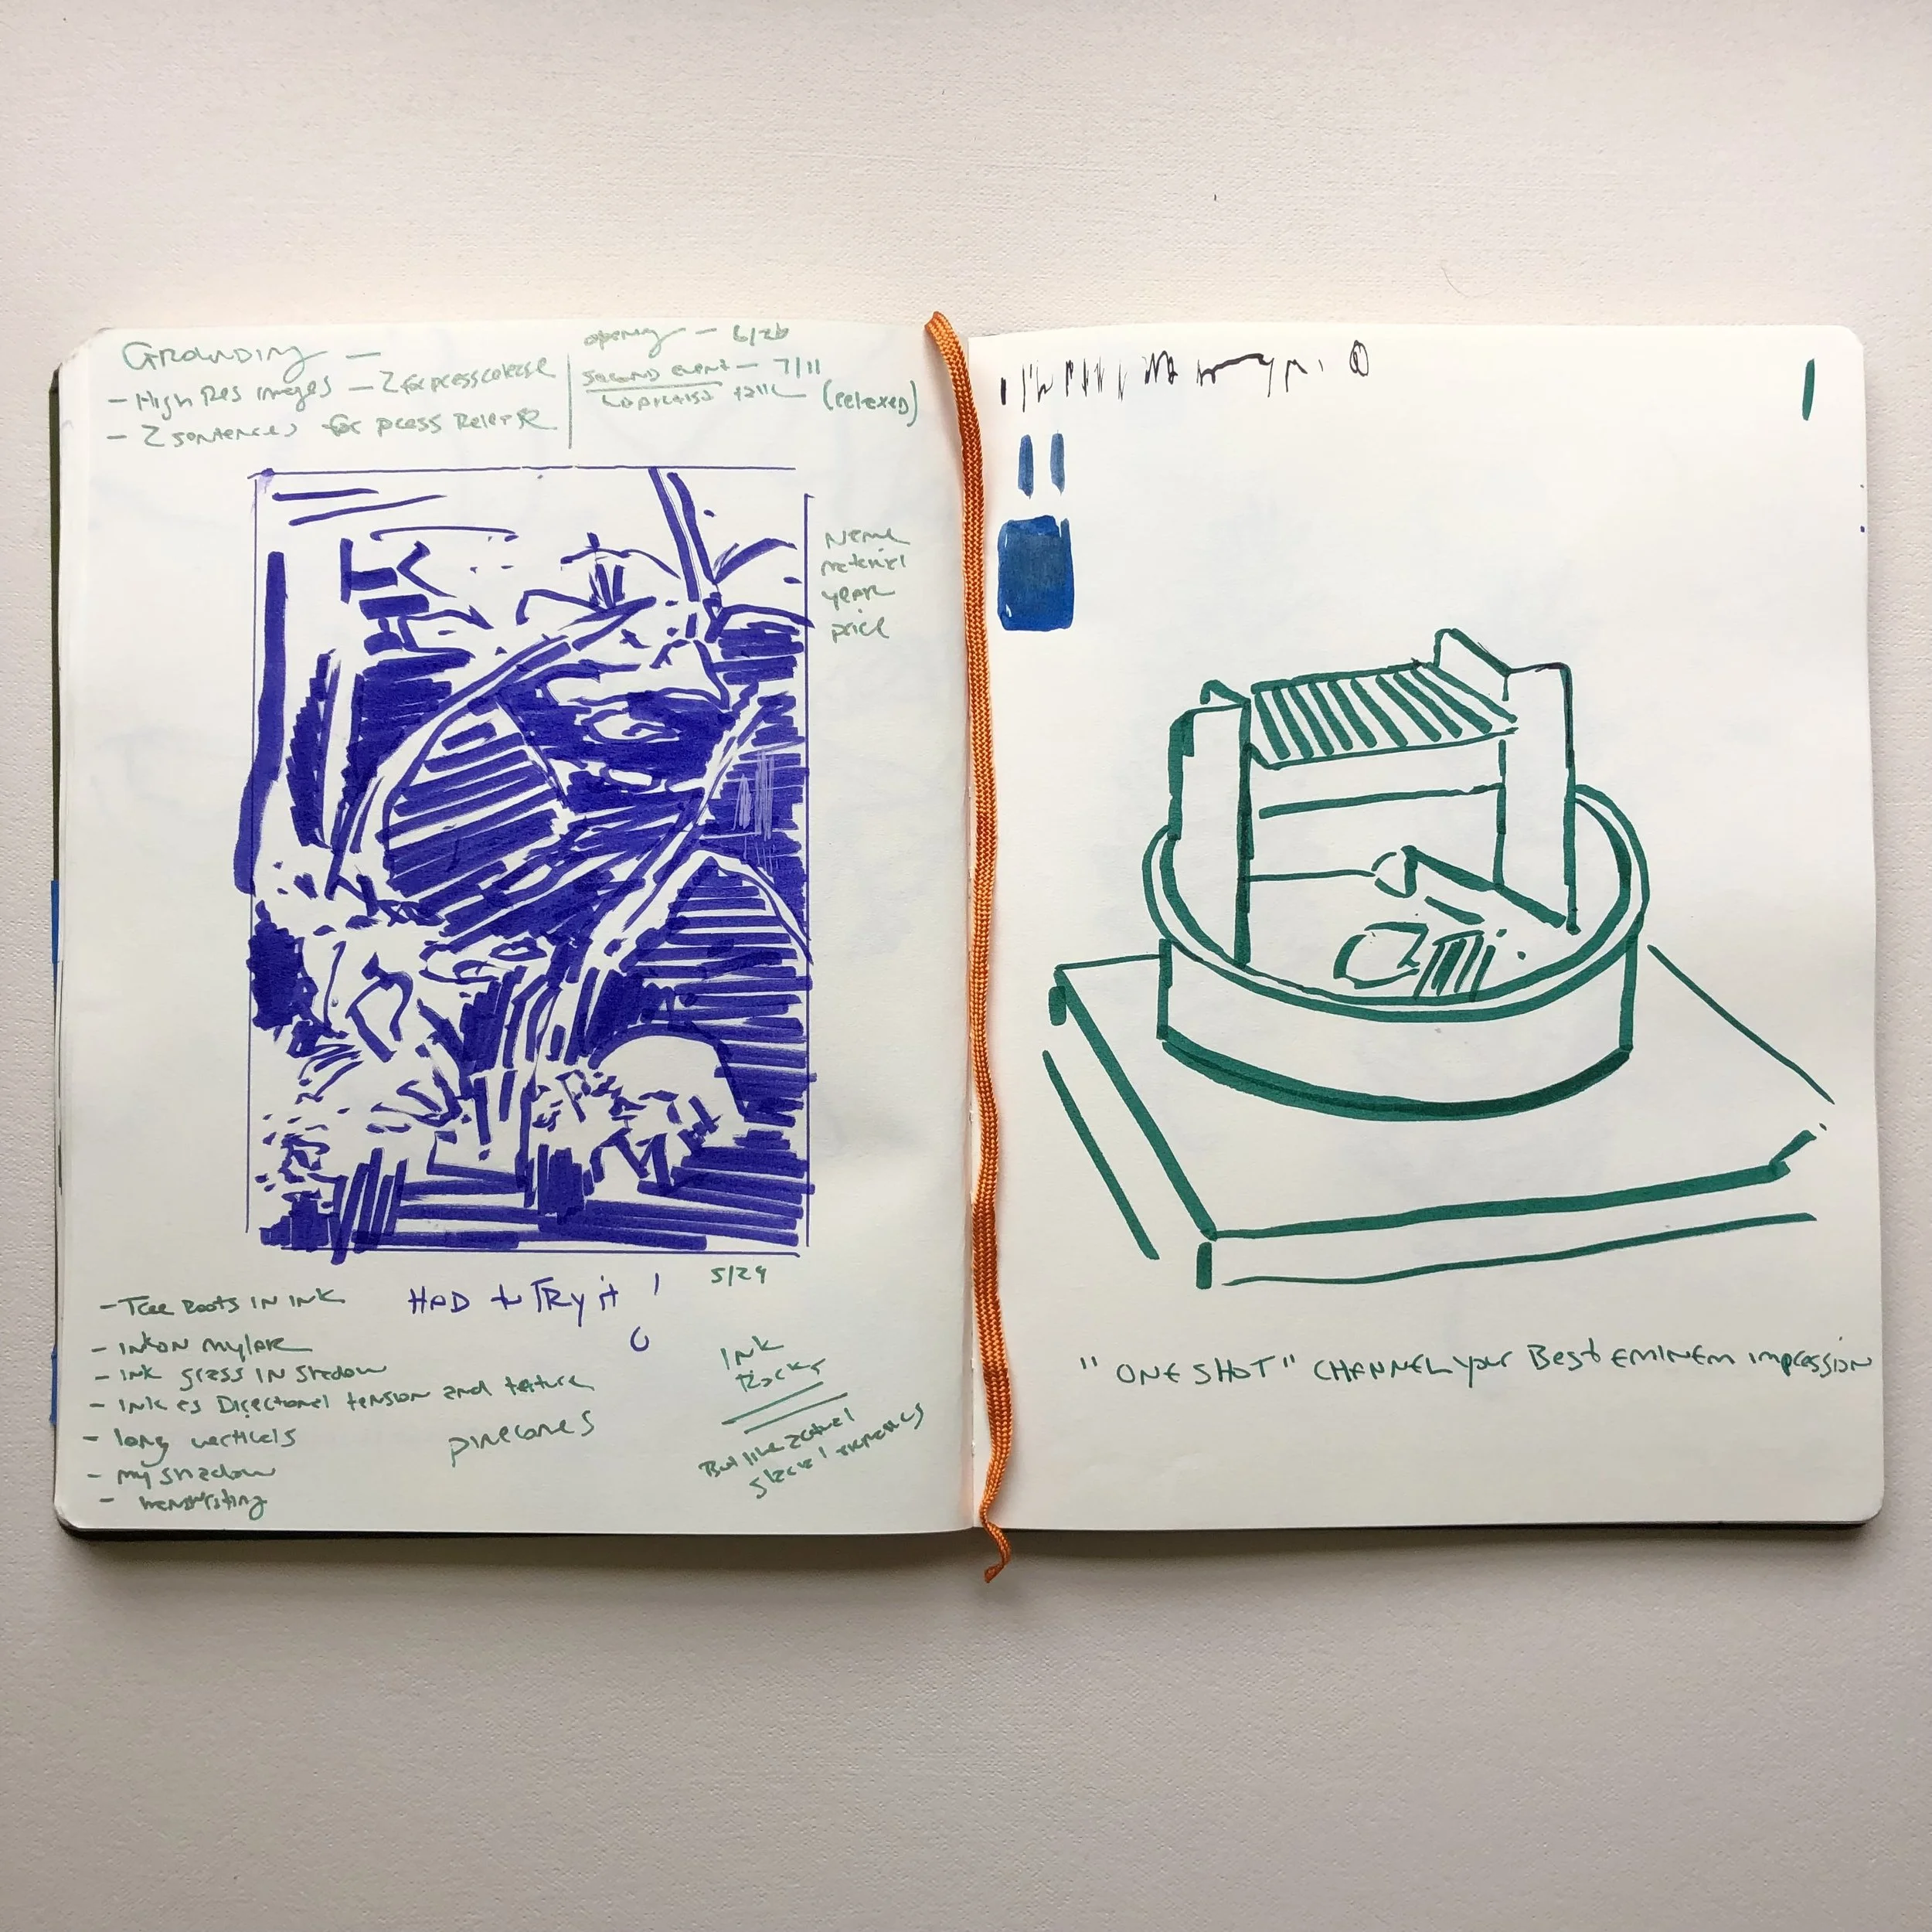 GROUNDING —
- High Res images - 2 for press release
- 2 sentences for press Release
opening - 6/26
second event - 7/11
talk (relaxed)
Name
material
year
price
5/29
HAD to TRY it !
- Tree Roots IN INK
- INK ON mylar
- INK grass IN Shadow
- INK as Directional tension and texture
- long verticals
- my shadow
- handwriting
pinecones
INK
Rocks
But like actual
"ONE SHOT" CHANNEL your Best EMINEM impression